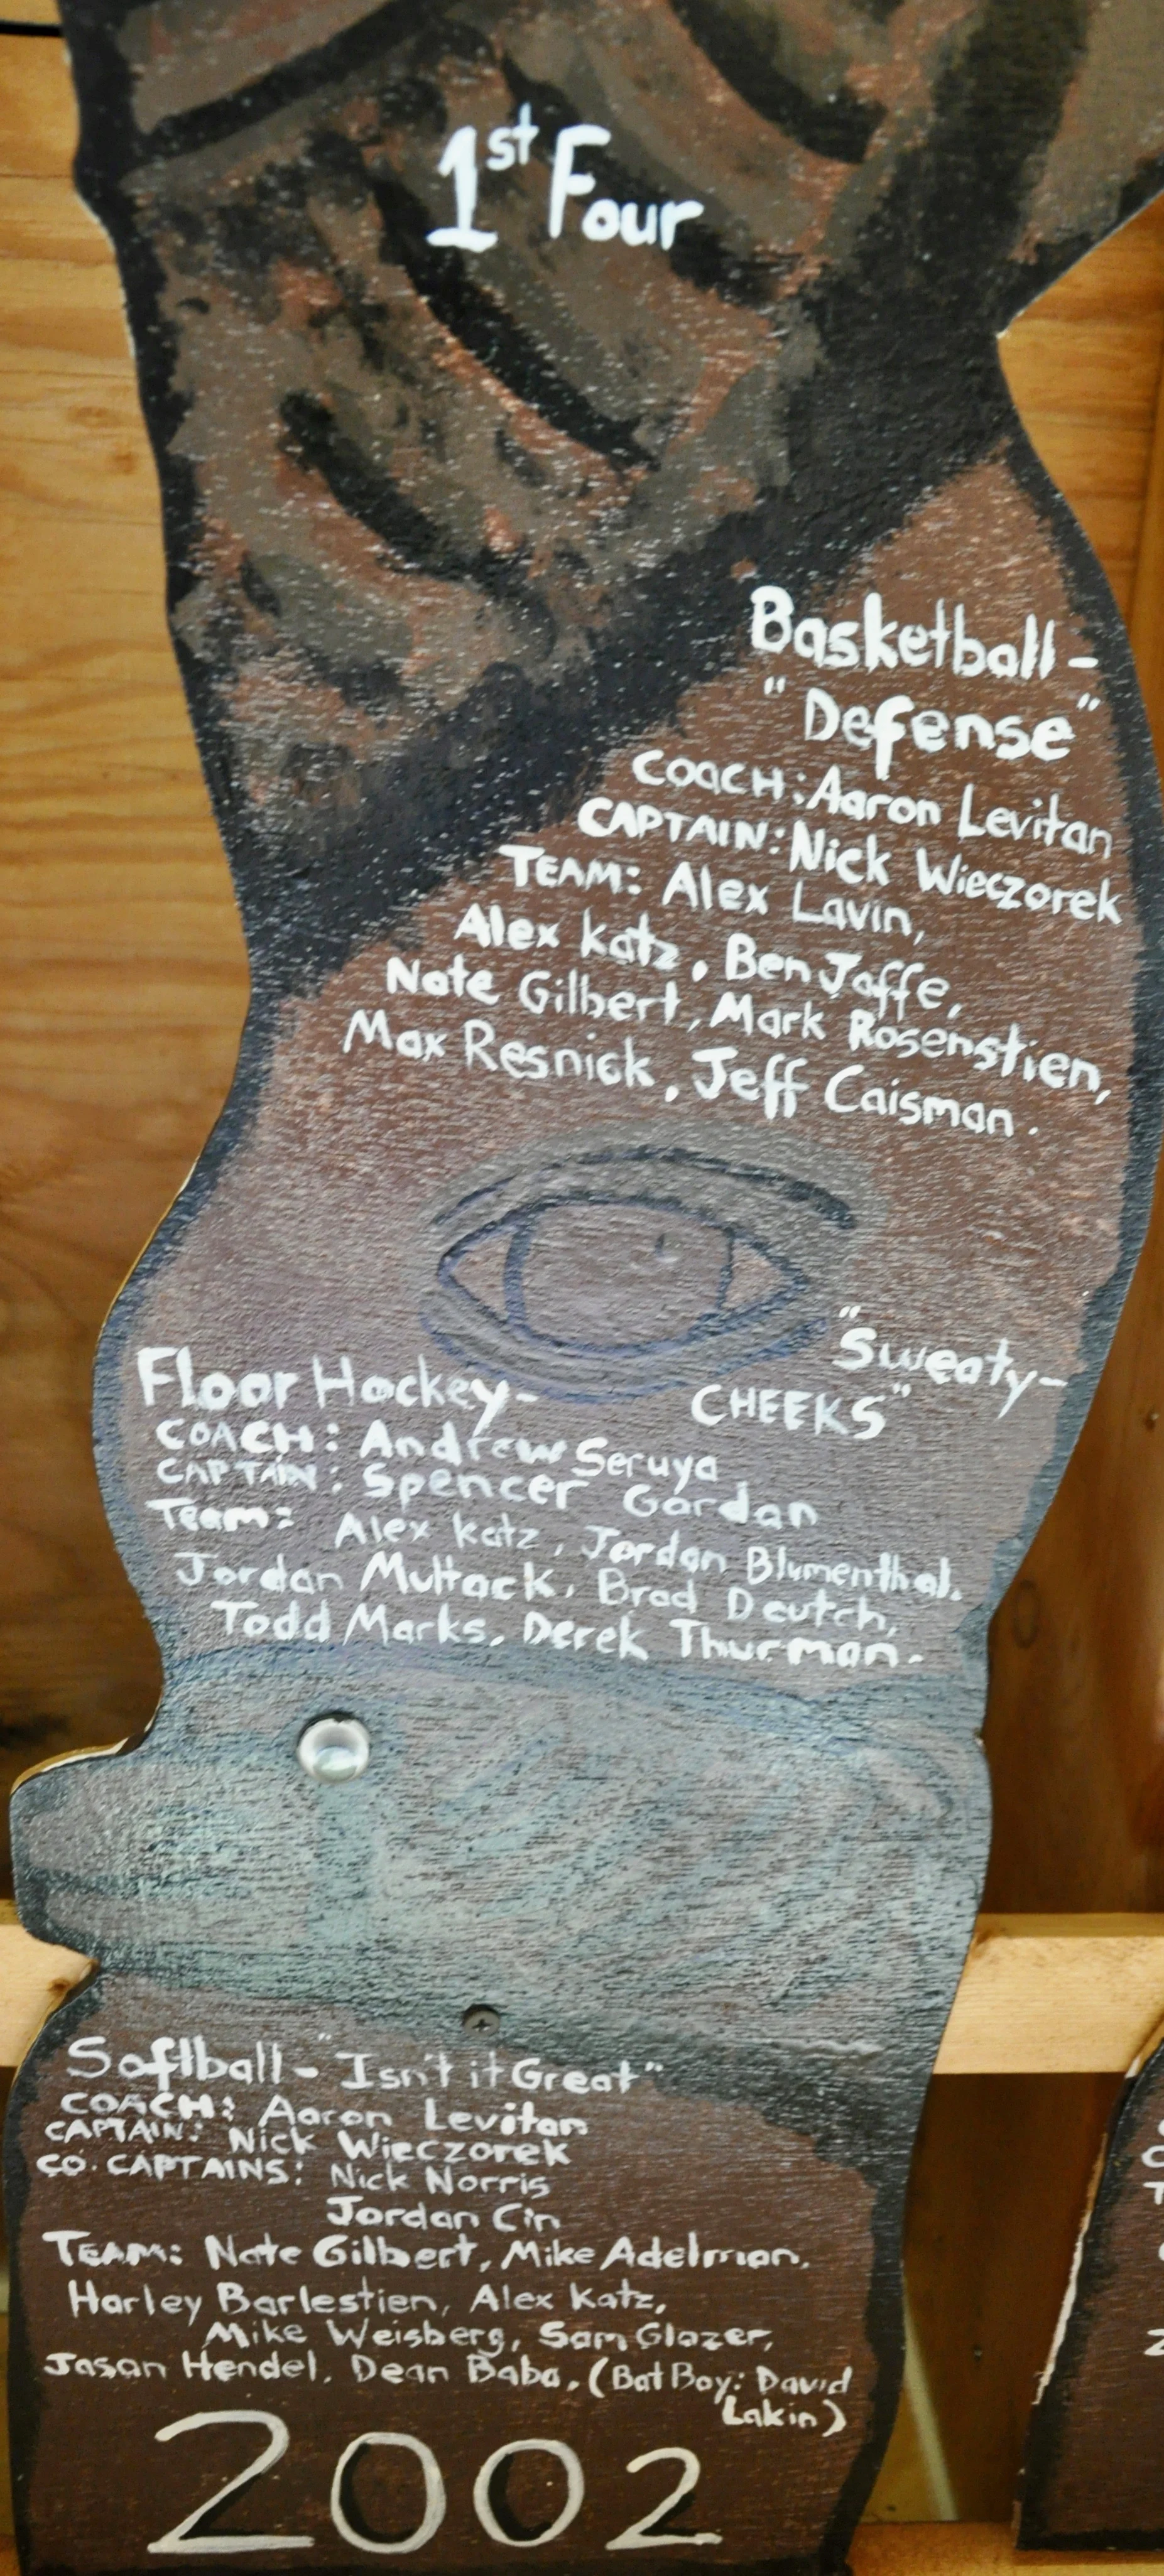 1st Four
Basketball-
"Defense"
COACH: Aaron Levitan
CAPTAIN: Nick Wieczorek
TEAM: Alex Lavin,
Alex Katz, Ben Jaffe,
Nate Gilbert, Mark Rosenstien,
Max Resnick, Jeff Caisman.
"Sweaty-
CHEEKS"
Floor Hockey-
COACH: Andrew Seruya
CAPTAIN: Spencer Gordan
Team: Alex Katz, Jordan Blumenthal,
Jordan Muttack, Brad Deutch,
Todd Marks, Derek Thurman.
Softball-"Isn't it Great"
COACH: Aaron Levitan
CAPTAIN: Nick Wieczorek
CO.CAPTAINS: Nick Norris
Jordan Cin
TEAM: Nate Gilbert, Mike Adelman,
Harley Barlestien, Alex Katz,
Mike Weisberg, Sam Glazer,
Jasan Hendel, Dean Baba, (Bat Boy: David
Lakin)
2002